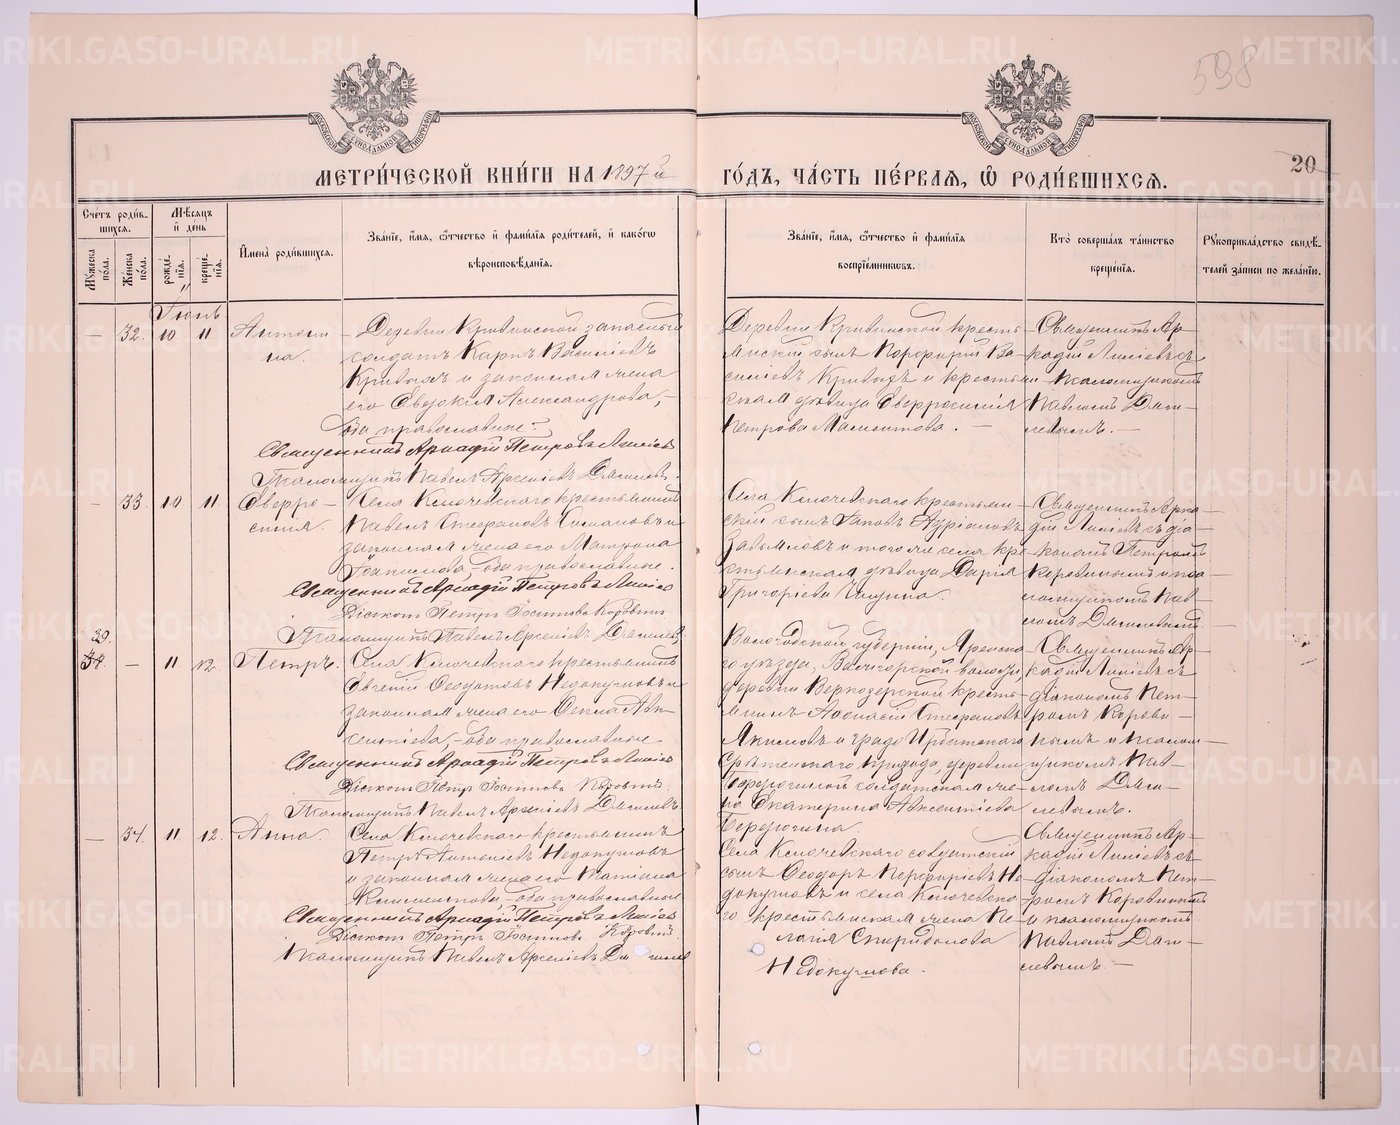 598
МЕТРИ́ЧЕСКОЙ КНИ́ГИ НА 1897 й
ГО́ДЪ, ЧА́СТЬ ПЕ́РВАЯ, Ѿ РОДИ́ВШИХСЯ.
20
Счетъ роди́вшихся.
Му́жеска по́ла.
Же́нска по́ла.
Мѣ́сяцъ и́ де́нь
рожде́нія.
креще́нія.
И́мена̀ роди́вшихся.
Зва́ніе, и́мя, ѻ́тчество и́ фами́лія роди́телей, и́ како́гѡ
вѣроисповѣ́данія.
Зва́ніе, и́мя, ѻ́тчество и́ фами́лія
воспріе́мниковъ.
Кто̀ соверша́лъ та́инство
креще́нія.
Рукоприкла́дство свидѣ́телей за́писи по жела́нію.
Іюнь
— 32. 10 11. Антони
на.
Деревни Кривинской запасный
солдатъ Карпъ Васильевъ
Кривыхъ и законная жена
его Евдокия Александрова, —
оба православные.
Священникъ Аркадій Петровъ Лисіев
Псаломщикъ Павелъ Арсеніевъ
Деревни Кривинской кресть
янскій сынъ Порфирий Ва-
силіевъ Кривыхъ и крестьян
ская дѣвица Евфросинія
Петрова . —
Священникъ Ар-
кадій Лисіевъ съ
псаломщикомъ
Павломъ
— 33. 10 11 Евфро-
синия.
Села Ключевскаго крестьянинъ
Павелъ Стефановъ и
законная жена его Матрона
оба православные.
Священникъ Аркадій Петровъ Лисіев
Діаконъ Петръ Коровинъ
Псаломщикъ Павелъ Арсеніевъ
Села Ключевскаго крестьян-
скій сынъ Іаковъ
и того же села кре
стьянская дѣвица Дарія
Григоріева
Священникъ Арка-
дій Лисіевъ съ діа-
кономъ Петромъ
Коровинымъ и пса
ломщикомъ Пав-
ломъ
29.
34. — 11 12. Петръ.
Села Ключевскаго крестьянинъ
Евгеній Ѳеодотовъ Недокушевъ и
законная жена его Ѳекла Авк
сентіева, — оба православные.
Священникъ Аркадій Петровъ Лисіев
Діаконъ Петръ Коровинъ
Псаломщикъ Павелъ Арсеніевъ
Вологодской губерніи, Яренска
го уѣзда, волости
деревни Верхозерской кресть
янинъ Аѳанасій Стефановъ
и града Ирбитскаго
Срѣтенскаго прихода, деревни
солдатская же-
на Екатерина Авксентіева
Бердюгина.
Священникъ Ар-
кадій Лисіевъ съ
діакономъ Пет-
ромъ Корови-
нымъ и псалом
щикомъ Пав-
ломъ
— 34. 11 12. Анна.
Села Ключевскаго крестьянинъ
Петръ Антоніевъ Недокушевъ
и законная жена его
Климентова, — оба православные
Священникъ Аркадій Петровъ Лисіев
Діаконъ Петръ Коровинъ
Псаломщикъ Павелъ Арсеніевъ
Села Ключевскаго солдатскій
сынъ Ѳеодоръ Порфиріевъ Не
докушевъ и села Ключевска
го крестьянская жена Пе-
лагія Спиридонова
Недокушева.
Священникъ Ар-
кадій Лисіевъ съ
діакономъ Пет-
ромъ Коровинымъ
и псаломщикомъ
Павломъ
METRIKI.GASO-URAL.RU